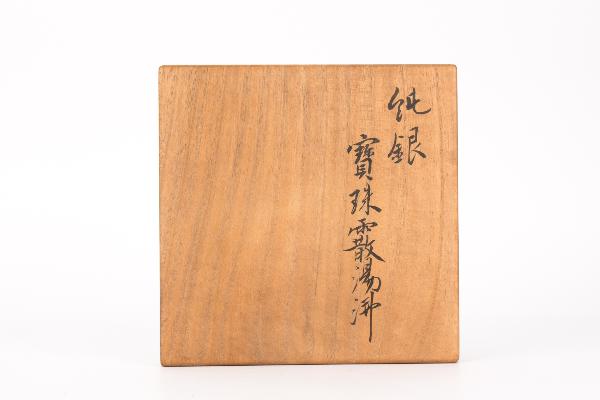 純銀
寶珠霰湯沸